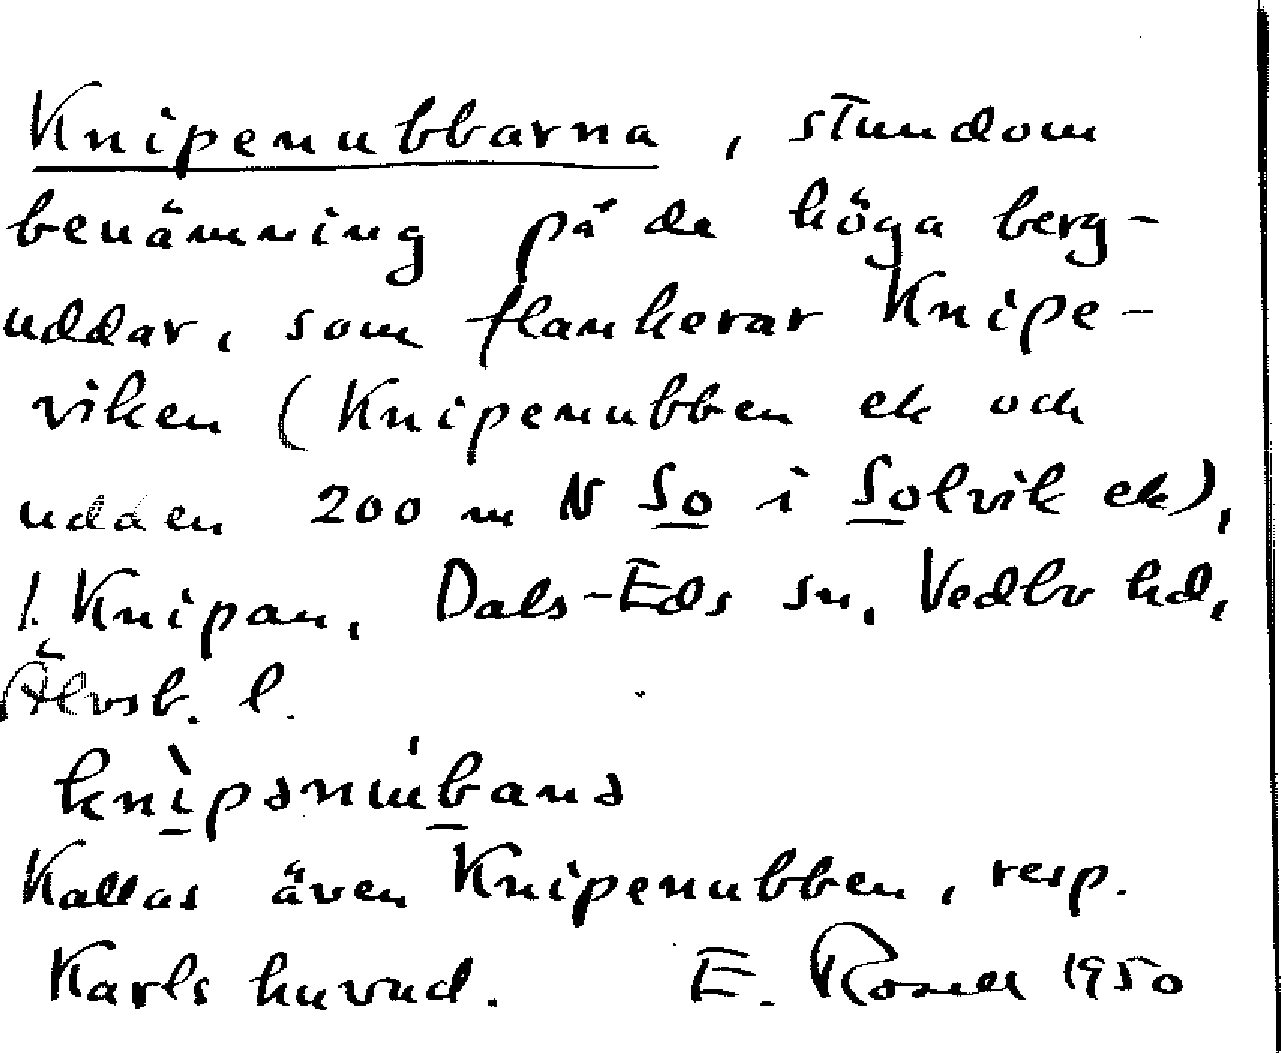 Knipenubbarna, stundom
benämning på de höga berg-
uddar, som flankerar Knipe-
viken (Knipenubben ek och
udden 200 m N So i Solvik ek),
l. Knipan, Dals-Eds sn, Vedbo hd,
Älvsb. l.
knìpənúbana
Kallas även Knipenubben, resp.
Karls huvud. E. Rosell 1950